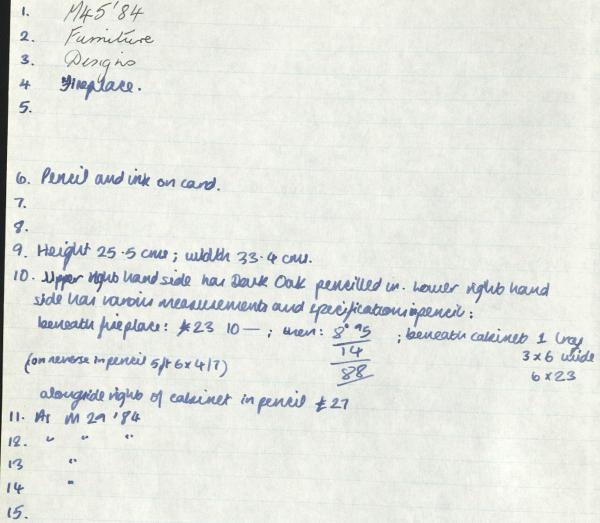 1. M45'84
2. Furniture
3. Designs
4 Fireplace.
5.
6. Pencil and ink on card.
7.
8.
9. Height 25.5 cms; width 33.4 cms.
10. Upper right hand side has Dark Oak pencilled in. Lower right hand
side has various measurements and specifications in pencil:
beneath fireplace: £23 10 — ; then: 8" 95 ; beneath cabinet 1
14 3 x 6 wide
(on reverse in pencil 5/7 6 x 4/7) 88 6 x 23
alongside right of cabinet in pencil £27
11. As M 29 '84
12. " " "
13 "
14 "
15.